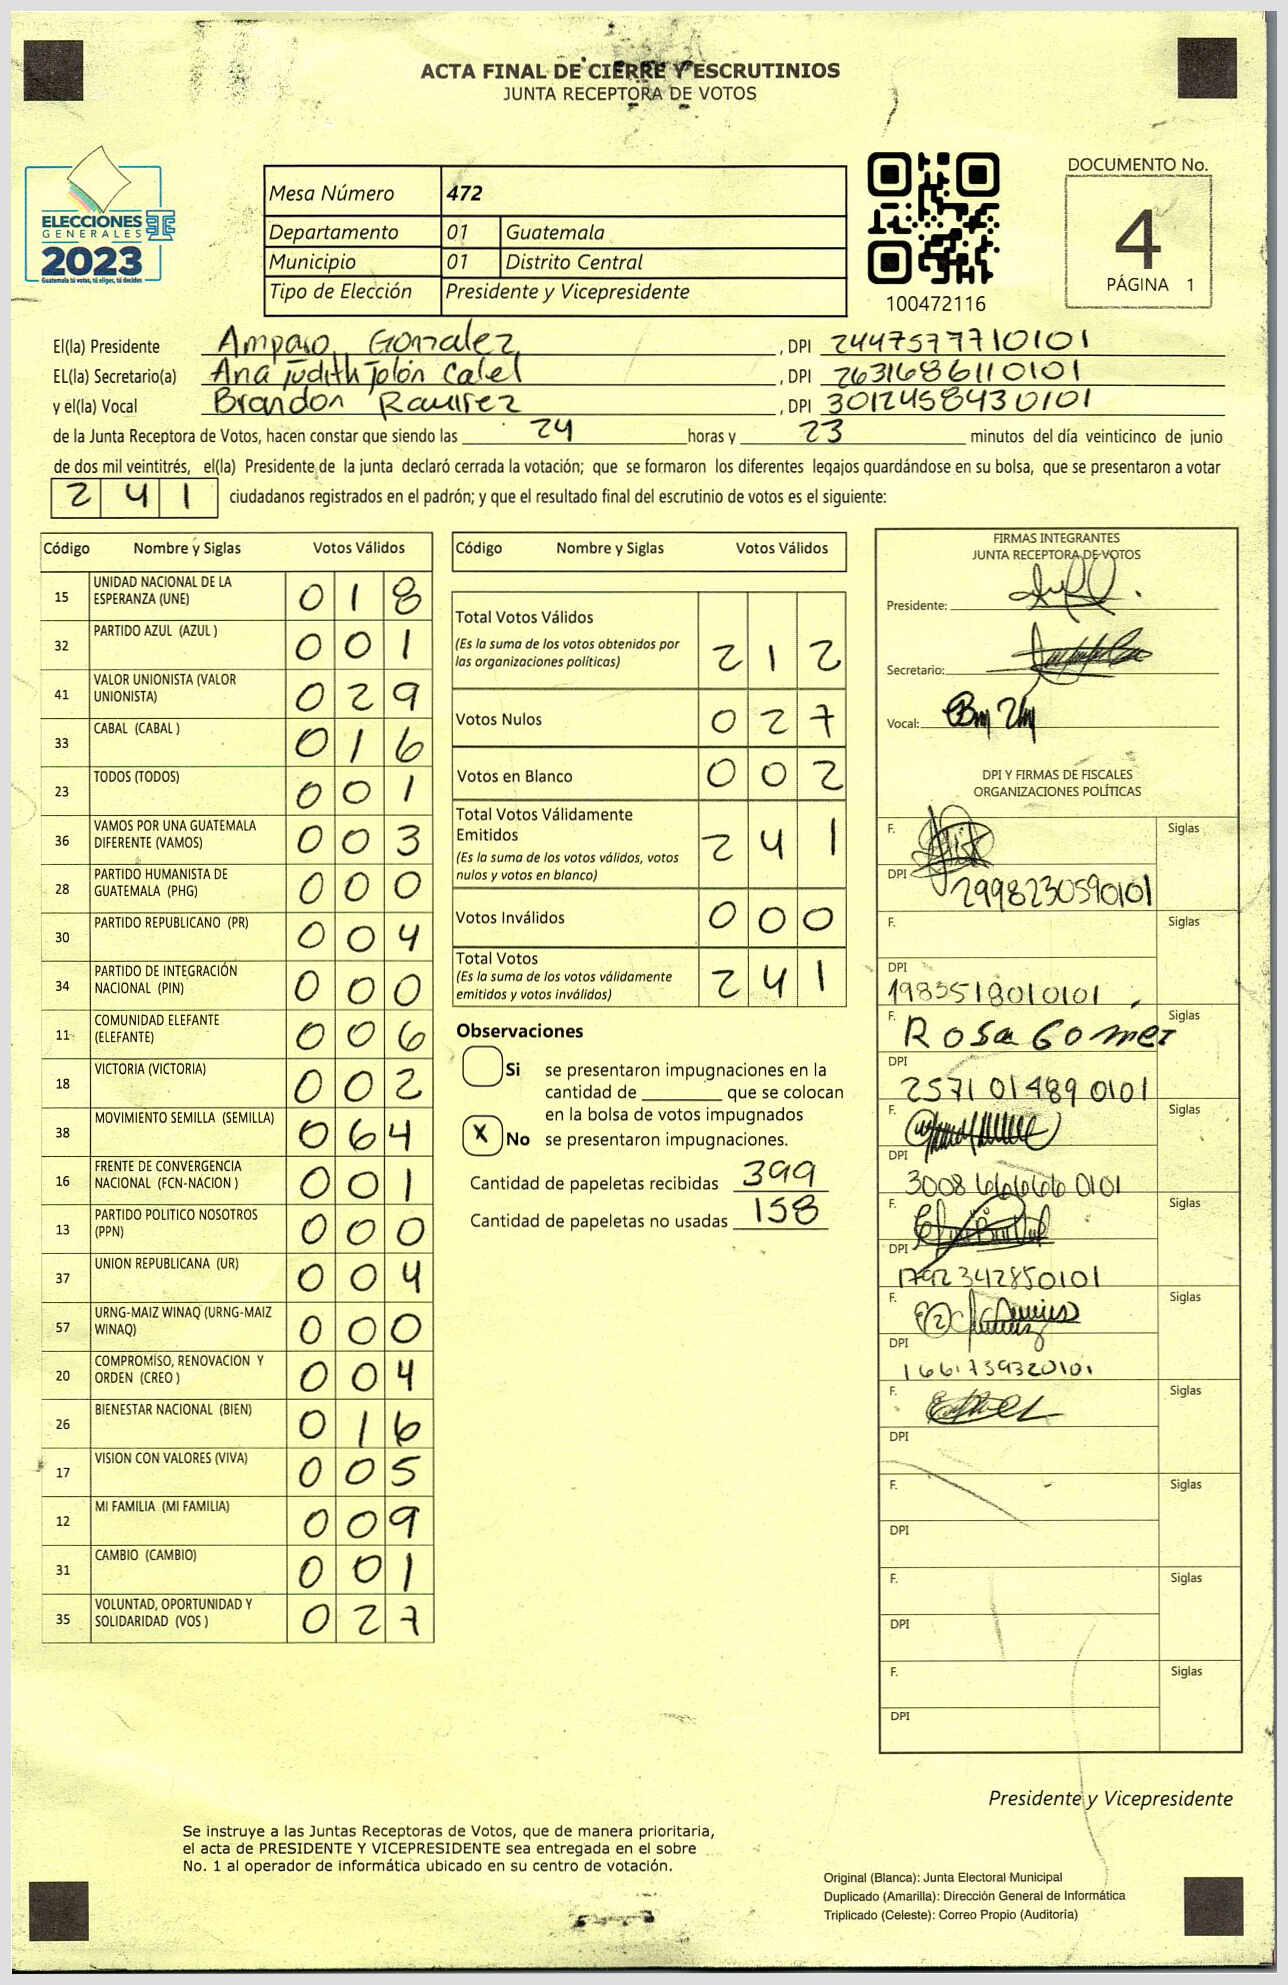 ACTA FINAL DE CIERRE Y ESCRUTINIOS
JUNTA RECEPTORA DE VOTOS
ELECCIONES
GENERALES
2023
Guatemala tú votas, tú eliges, tú decides
Mesa Número 472
Departamento 01 Guatemala
Municipio 01 Distrito Central
Tipo de Elección Presidente y Vicepresidente
100472116
DOCUMENTO No.
4
PÁGINA 1
El(la) Presidente Amparo Gonzalez , DPI 2447577710101
EL(la) Secretario(a) Ana Judith Jolón Calel , DPI 2631686110101
y el(la) Vocal Brandon Ramirez , DPI 3012458430101
de la Junta Receptora de Votos, hacen constar que siendo las 24 horas y 23 minutos del día veinticinco de junio
de dos mil veintitrés, el(la) Presidente de la junta declaró cerrada la votación; que se formaron los diferentes legajos guardándose en su bolsa, que se presentaron a votar
2 4 1 ciudadanos registrados en el padrón; y que el resultado final del escrutinio de votos es el siguiente:
Código Nombre y Siglas Votos Válidos
15 UNIDAD NACIONAL DE LA ESPERANZA (UNE) 0 1 8
32 PARTIDO AZUL (AZUL ) 0 0 1
41 VALOR UNIONISTA (VALOR UNIONISTA) 0 2 9
33 CABAL (CABAL ) 0 1 6
23 TODOS (TODOS) 0 0 1
36 VAMOS POR UNA GUATEMALA DIFERENTE (VAMOS) 0 0 3
28 PARTIDO HUMANISTA DE GUATEMALA (PHG) 0 0 0
30 PARTIDO REPUBLICANO (PR) 0 0 4
34 PARTIDO DE INTEGRACIÓN NACIONAL (PIN) 0 0 0
11 COMUNIDAD ELEFANTE (ELEFANTE) 0 0 6
18 VICTORIA (VICTORIA) 0 0 2
38 MOVIMIENTO SEMILLA (SEMILLA) 0 6 4
16 FRENTE DE CONVERGENCIA NACIONAL (FCN-NACION ) 0 0 1
13 PARTIDO POLITICO NOSOTROS (PPN) 0 0 0
37 UNION REPUBLICANA (UR) 0 0 4
57 URNG-MAIZ WINAQ (URNG-MAIZ WINAQ) 0 0 0
20 COMPROMISO, RENOVACION Y ORDEN (CREO ) 0 0 4
26 BIENESTAR NACIONAL (BIEN) 0 1 6
17 VISION CON VALORES (VIVA) 0 0 5
12 MI FAMILIA (MI FAMILIA) 0 0 9
31 CAMBIO (CAMBIO) 0 0 1
35 VOLUNTAD, OPORTUNIDAD Y SOLIDARIDAD (VOS ) 0 2 7
Código Nombre y Siglas Votos Válidos
Total Votos Válidos
(Es la suma de los votos obtenidos por
las organizaciones políticas) 2 1 2
Votos Nulos 0 2 7
Votos en Blanco 0 0 2
Total Votos Válidamente
Emitidos 2 4 1
(Es la suma de los votos válidos, votos
nulos y votos en blanco)
Votos Inválidos 0 0 0
Total Votos
(Es la suma de los votos válidamente
emitidos y votos inválidos) 2 4 1
Observaciones
Si se presentaron impugnaciones en la
cantidad de ________ que se colocan
en la bolsa de votos impugnados
X No se presentaron impugnaciones.
Cantidad de papeletas recibidas 399
Cantidad de papeletas no usadas 158
FIRMAS INTEGRANTES
JUNTA RECEPTORA DE VOTOS
Presidente:
Secretario:
Vocal:
DPI Y FIRMAS DE FISCALES
ORGANIZACIONES POLÍTICAS
F. Siglas
DPI 2998230590101
F. Siglas
DPI 1983518010101
F. Rosa Gomez Siglas
DPI 2571014890101
F. Siglas
DPI 3008666660101
F. Siglas
DPI 1792342850101
F. Siglas
DPI 1661739320101
F. Siglas
DPI
F. Siglas
DPI
F. Siglas
DPI
F. Siglas
DPI
Presidente y Vicepresidente
Se instruye a las Juntas Receptoras de Votos, que de manera prioritaria,
el acta de PRESIDENTE Y VICEPRESIDENTE sea entregada en el sobre
No. 1 al operador de informática ubicado en su centro de votación.
Original (Blanca): Junta Electoral Municipal
Duplicado (Amarilla): Dirección General de Informática
Triplicado (Celeste): Correo Propio (Auditoría)